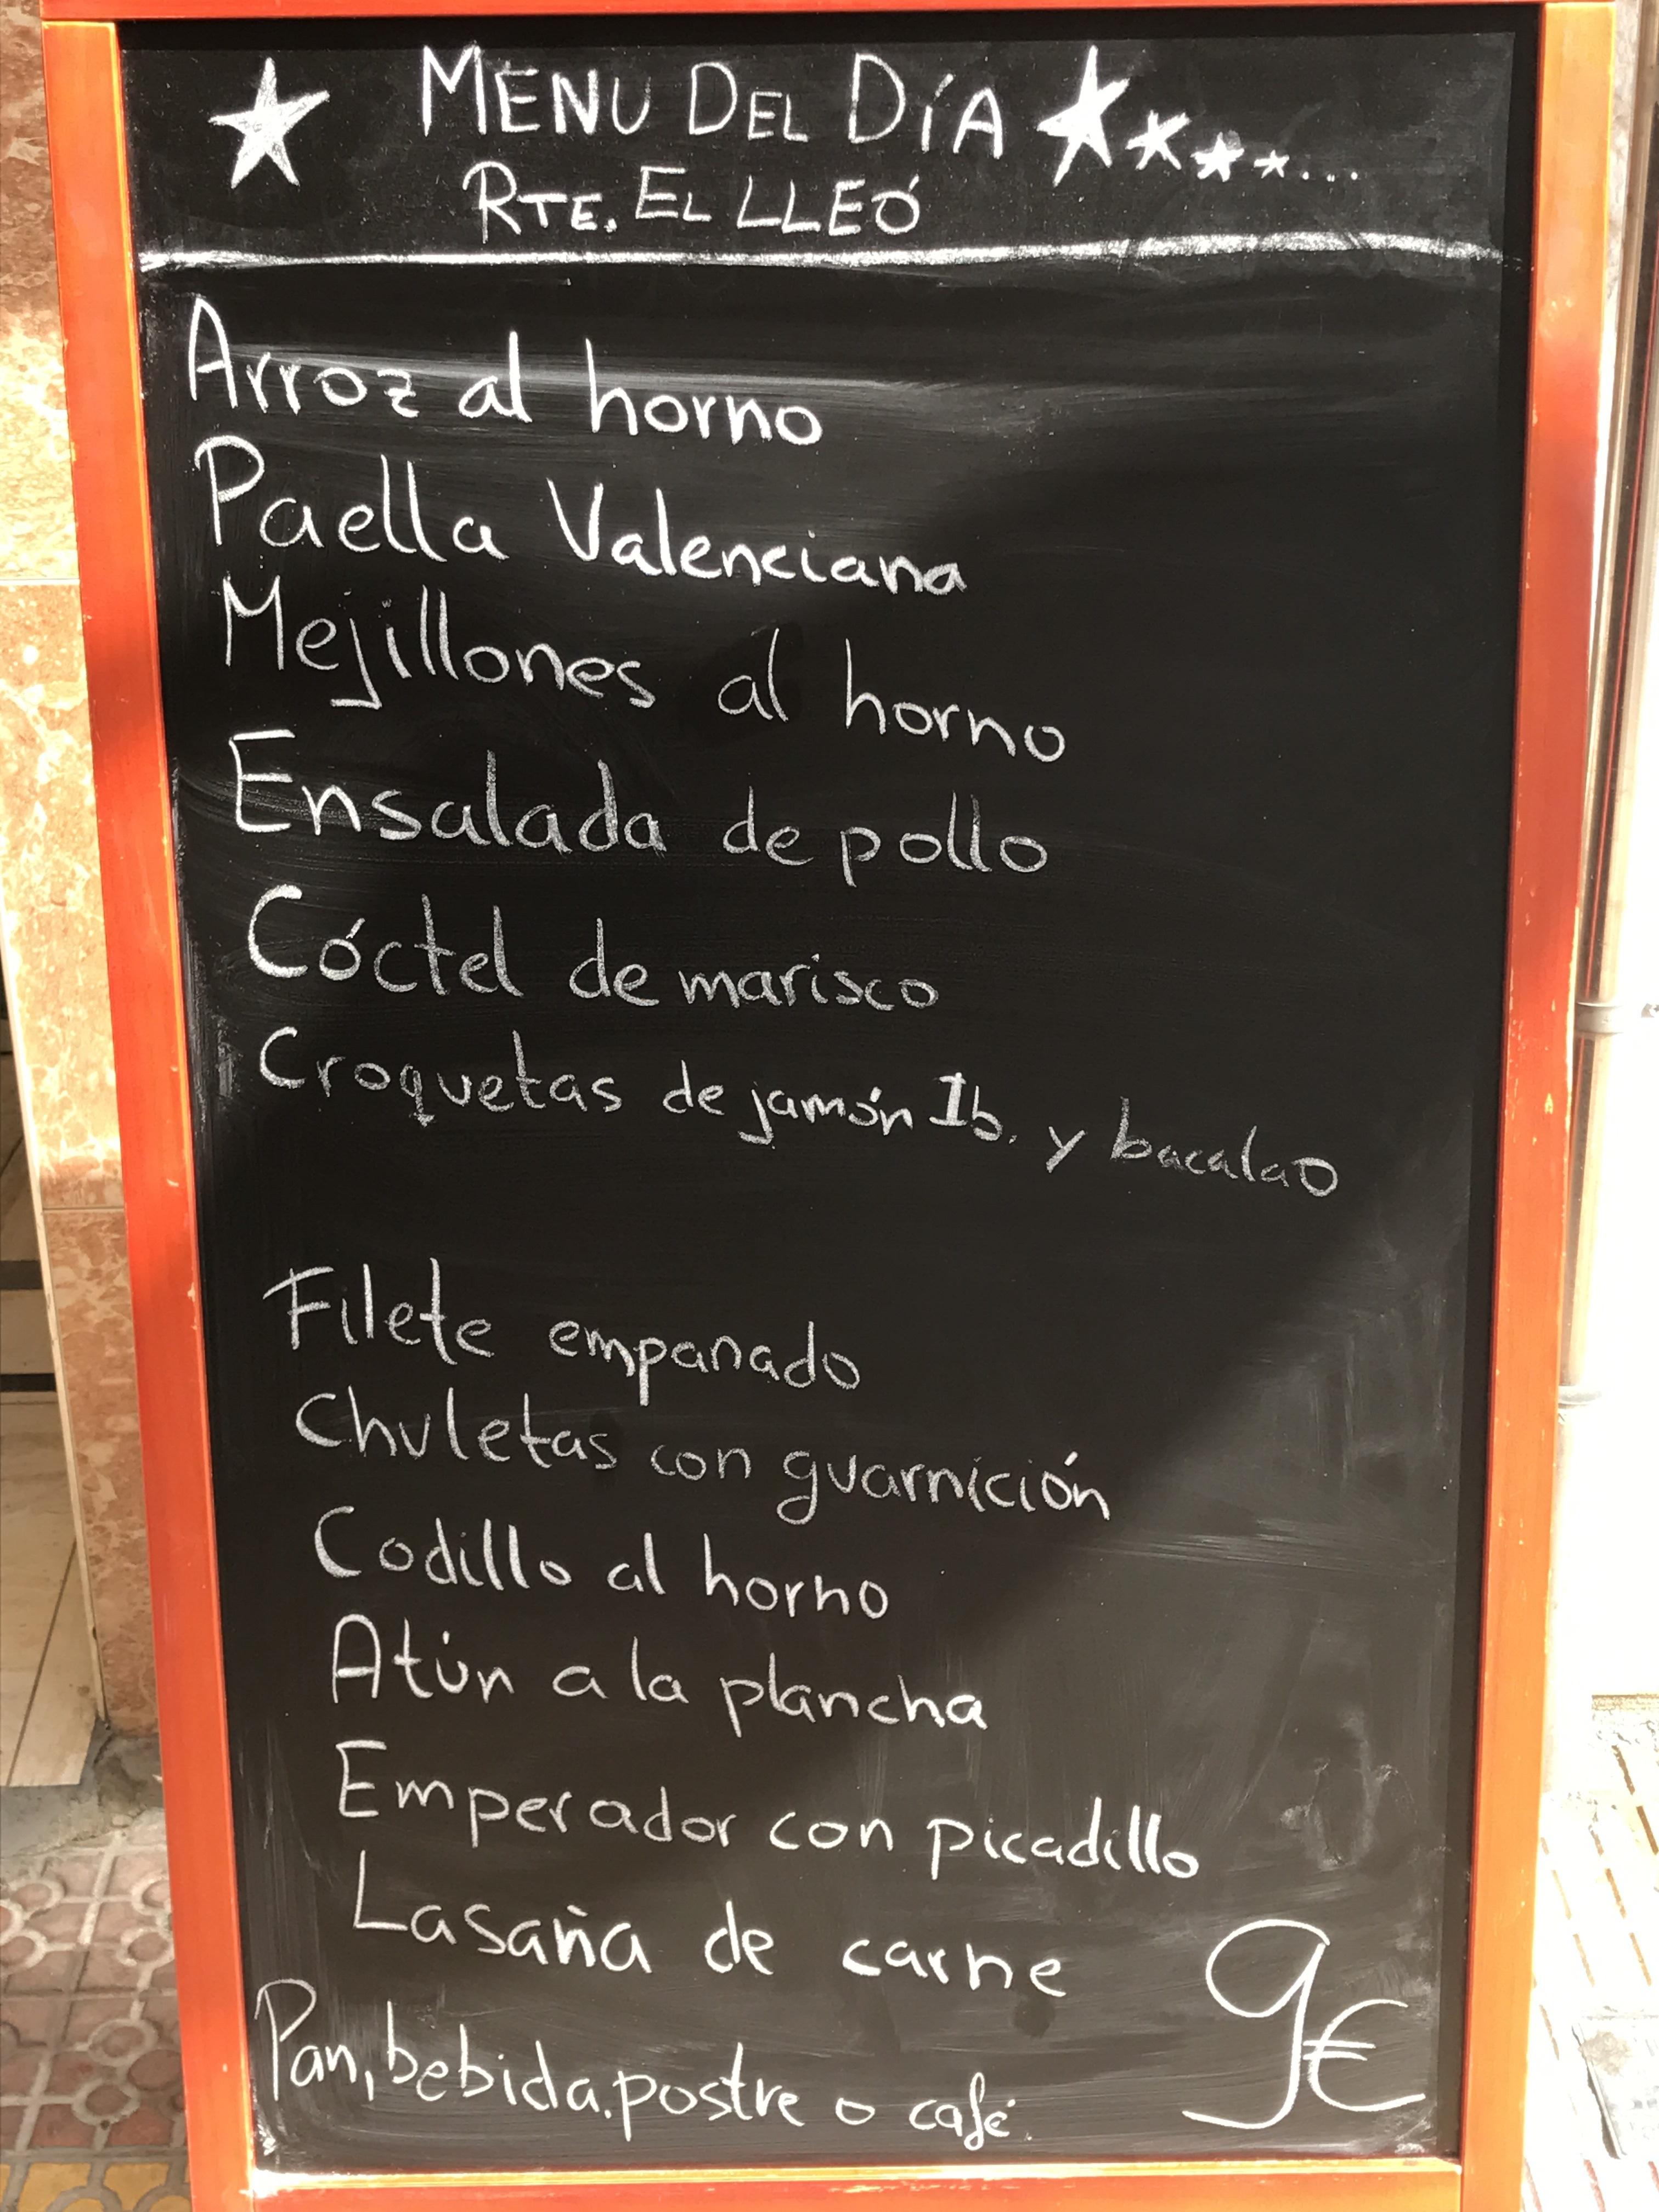 MENU DEL DÍA
RTE. EL LLEÓ
Arroz al horno
Paella Valenciana
Mejillones al horno
Ensalada de pollo
Cóctel de marisco
Croquetas de jamón Ib. y bacalao
Filete empanado
Chuletas con guarnición
Codillo al horno
Atún a la plancha
Emperador con picadillo
Lasaña de carne
Pan, bebida. postre o café.
9€